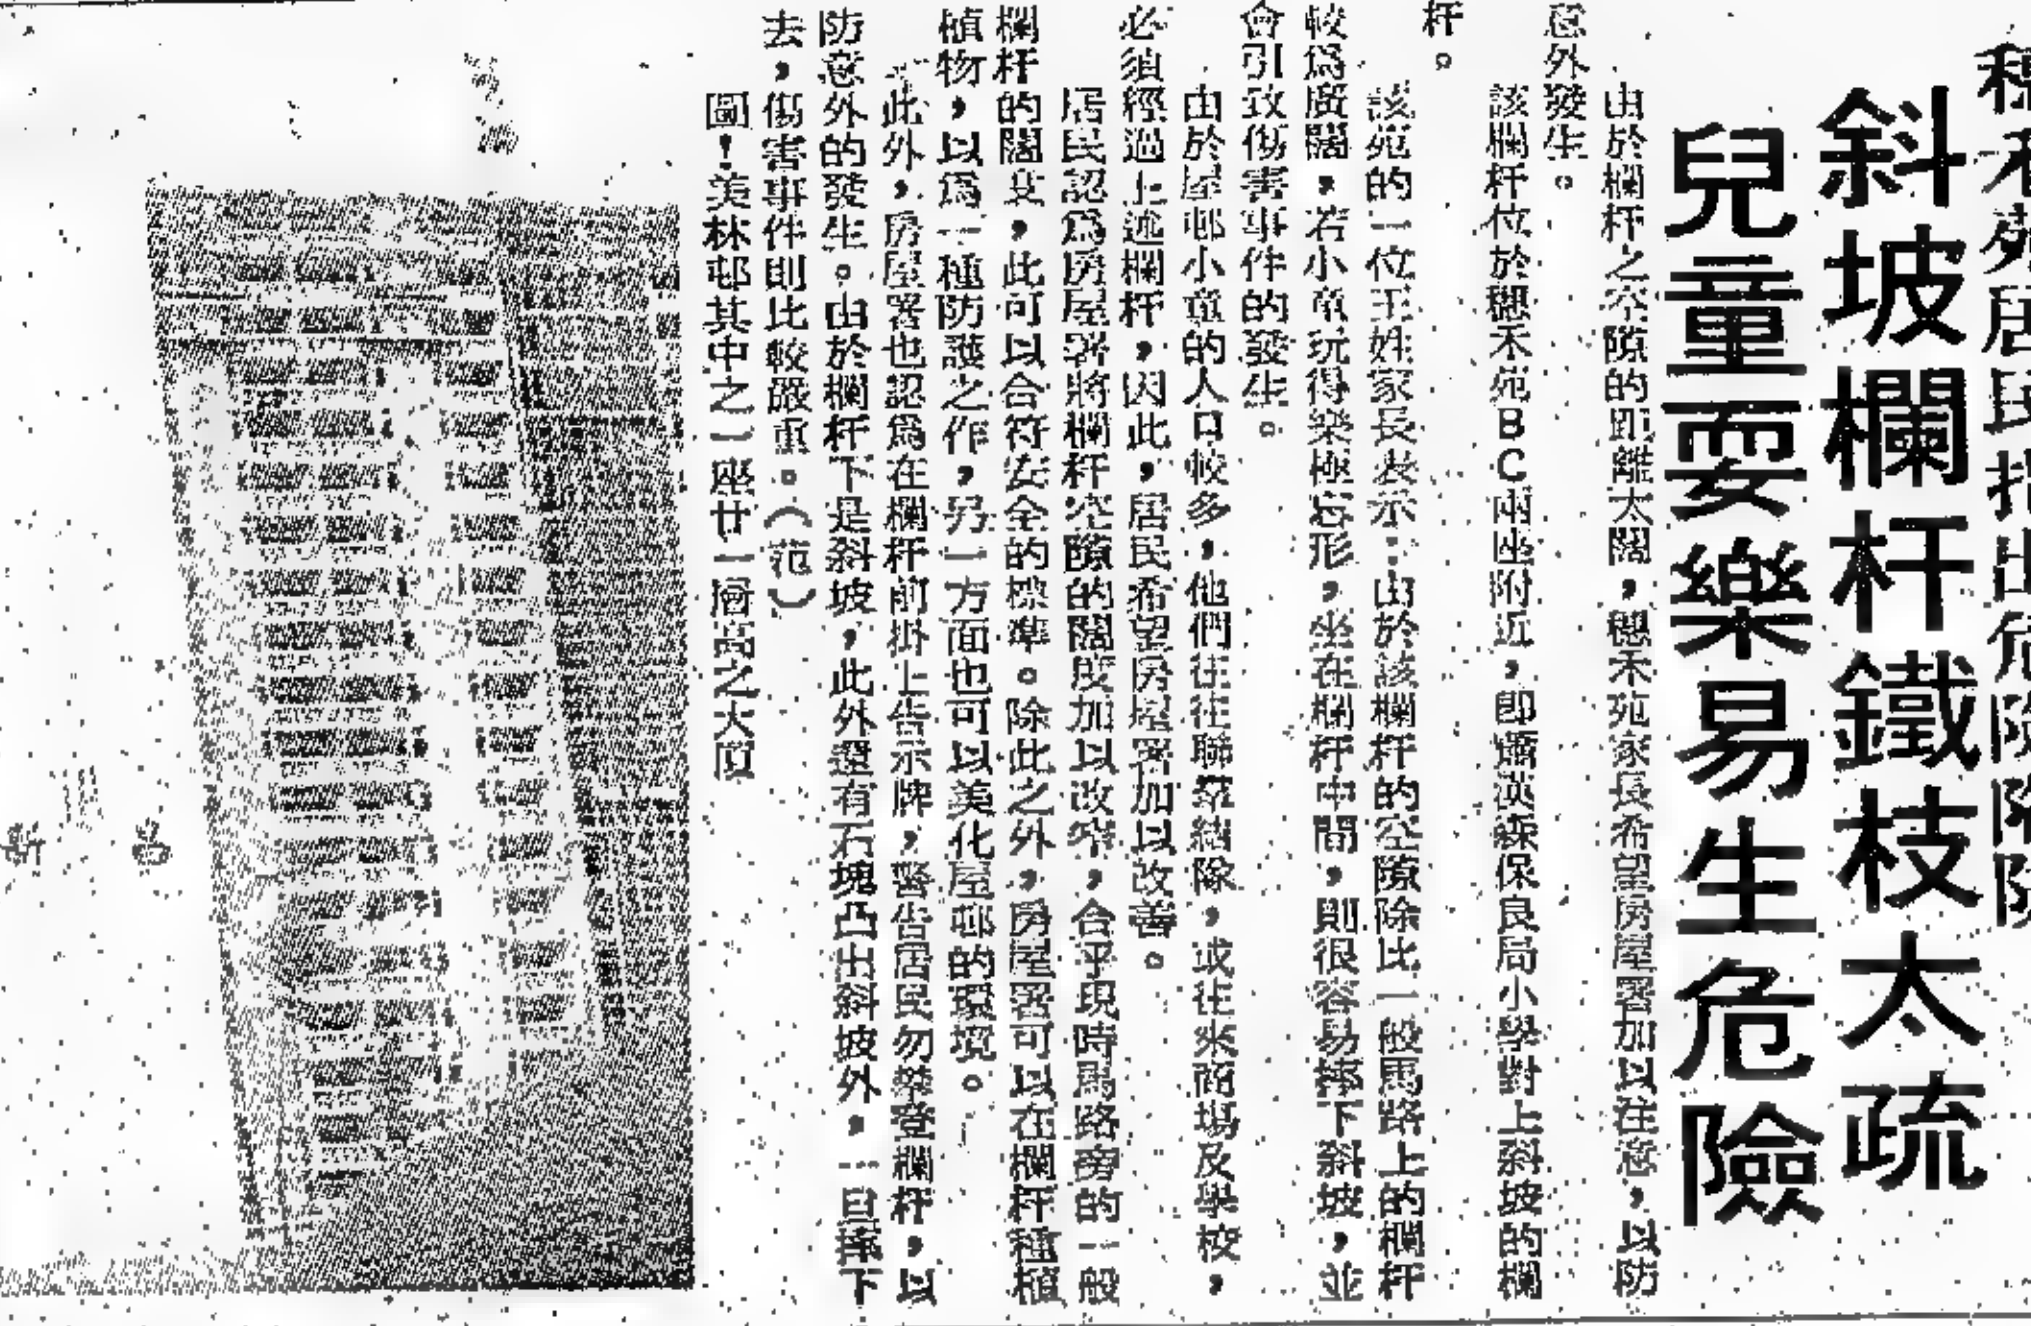 穗禾苑居民指出危險陷阱
斜坡欄杆鐵枝太疏
兒童耍樂易生危險
由於欄杆之空隙的距離太闊，穗禾苑家長希望房屋署加以注意，以防
意外發生。
該欄杆位於穗禾苑BC兩座附近，即蕭漢森保良局小學對上斜坡的欄
杆。
該苑的一位王姓家長表示：由於該欄杆的空隙除比一般馬路上的欄杆
較為廣闊，若小童玩得樂極忘形，坐在欄杆中間，則很容易摔下斜坡，並
會引致傷害事件的發生。
由於屋邨小童的人口較多，他們往往聯羣結隊，或往來商場及學校，
必須經過上述欄杆，因此，居民希望房屋署加以改善。
居民認為房屋署將欄杆空隙的闊度加以改窄，合乎現時馬路旁的一般
欄杆的闊度，此可以合符安全的標準。除此之外，房屋署可以在欄杆種植
植物，以為一種防護之作，另一方面也可以美化屋邨的環境。
此外，房屋署也認為在欄杆前掛上告示牌，警告居民勿攀登欄杆，以
防意外的發生。由於欄杆下是斜坡，此外還有石塊凸出斜坡外，一旦摔下
去，傷害事件則比較嚴重。（范）
圖！美林邨其中之一座廿一層高之大廈